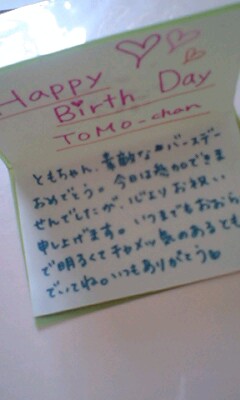 Happy
Birth Day
TOMO-chan
ともちゃん、素敵なバースデー
おめでとう。今日は参加できま
せんでしたが、心よりお祝い
申し上げます。いつまでもおおら
かで明るくてチャメッ気のあるとも
でいてね。いつもありがとう